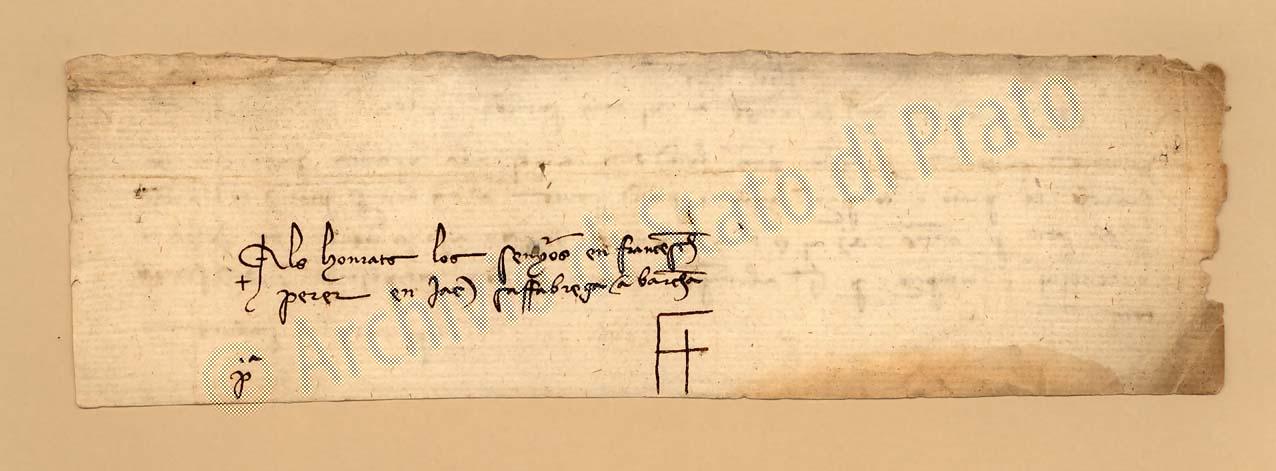 Als honrats los senyos en franceschͫ
perer en Jac saffabrega a barchᵃ
pᵃ
© Archivio di Stato di Prato